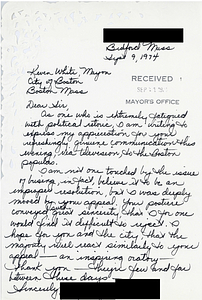 Bedford Mass
Sept 9, 1974
Kevin White, Mayor
City of Boston
Boston Mass
RECEIVED
SEP 1974
MAYOR'S OFFICE
Dear Sir,
As one who is extremely fatigued
with political rhetoric, I am writing to
express my appreciation for your
refreshingly genuine communication this
evening, via television, to the Boston
populace.
I am not one touched by the issue
of busing, in fact, believe it to be an
improper resolution, but I was deeply
moved by your appeal. Your posture
conveyed great sincerity that I for one
would find it difficult to reject. I
hope for you and the city, that the
majority will react similarly to your
appeal — an inspiring oratory —
Thank you — they're few and far
between these days!
Sincerely